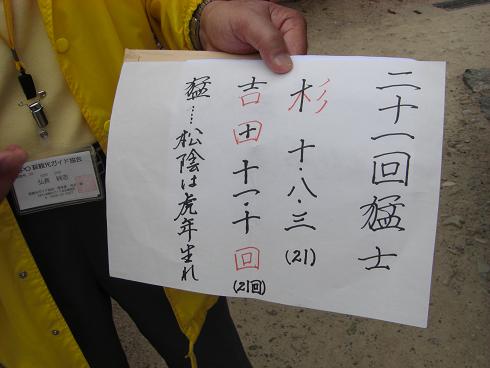 二十一回猛士
杉 十・八・三 (21)
吉田 十一・十 回 (21回)
猛…松陰は虎年生れ
萩観光ガイド協会